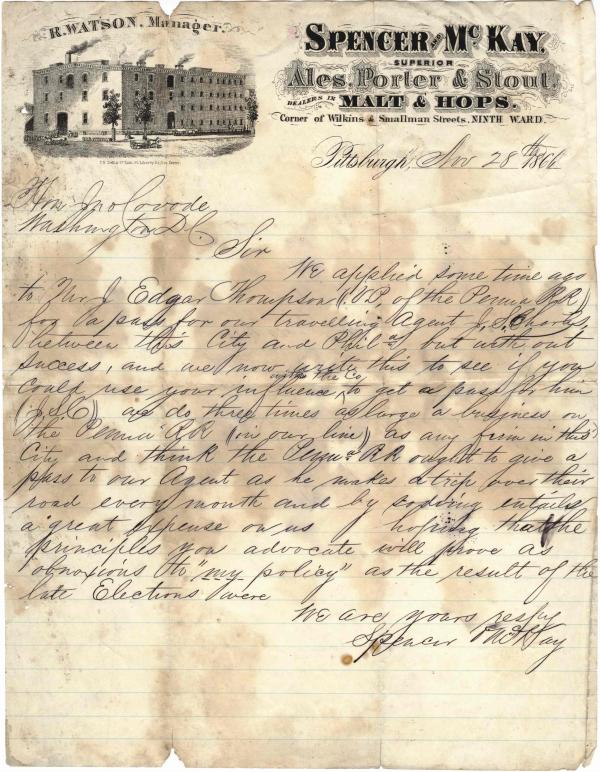 R. WATSON, Manager.
SPENCER AND McKAY,
SUPERIOR
Ales, Porter & Stout.
DEALERS IN
MALT & HOPS.
Corner of Wilkins & Smallman Streets, NINTH WARD.
Pittsburgh, Nov 28th 1866
Hon Jno Covode
Washington D.C
Sir
We applied some time ago
to Mr J Edgar Thompson of the Penna RR
for a pass for our travelling Agent J. S. Charles
between this City and Phila but without
success, and we now write this to see if you
with the Co
could use your influence to get a pass for him
(J.S.C) we do three times as large a business on
the Penna RR (in our line) as any firm in this
City and think the Penna RR ought to give a
pass to our Agent as he makes a trip over their
road every month and by so doing entails
a great expense on us hoping that the
principles you advocate will prove as
obnoxious to "my policy" as the result of the
late Elections were
We are yours respy
Spencer McKay